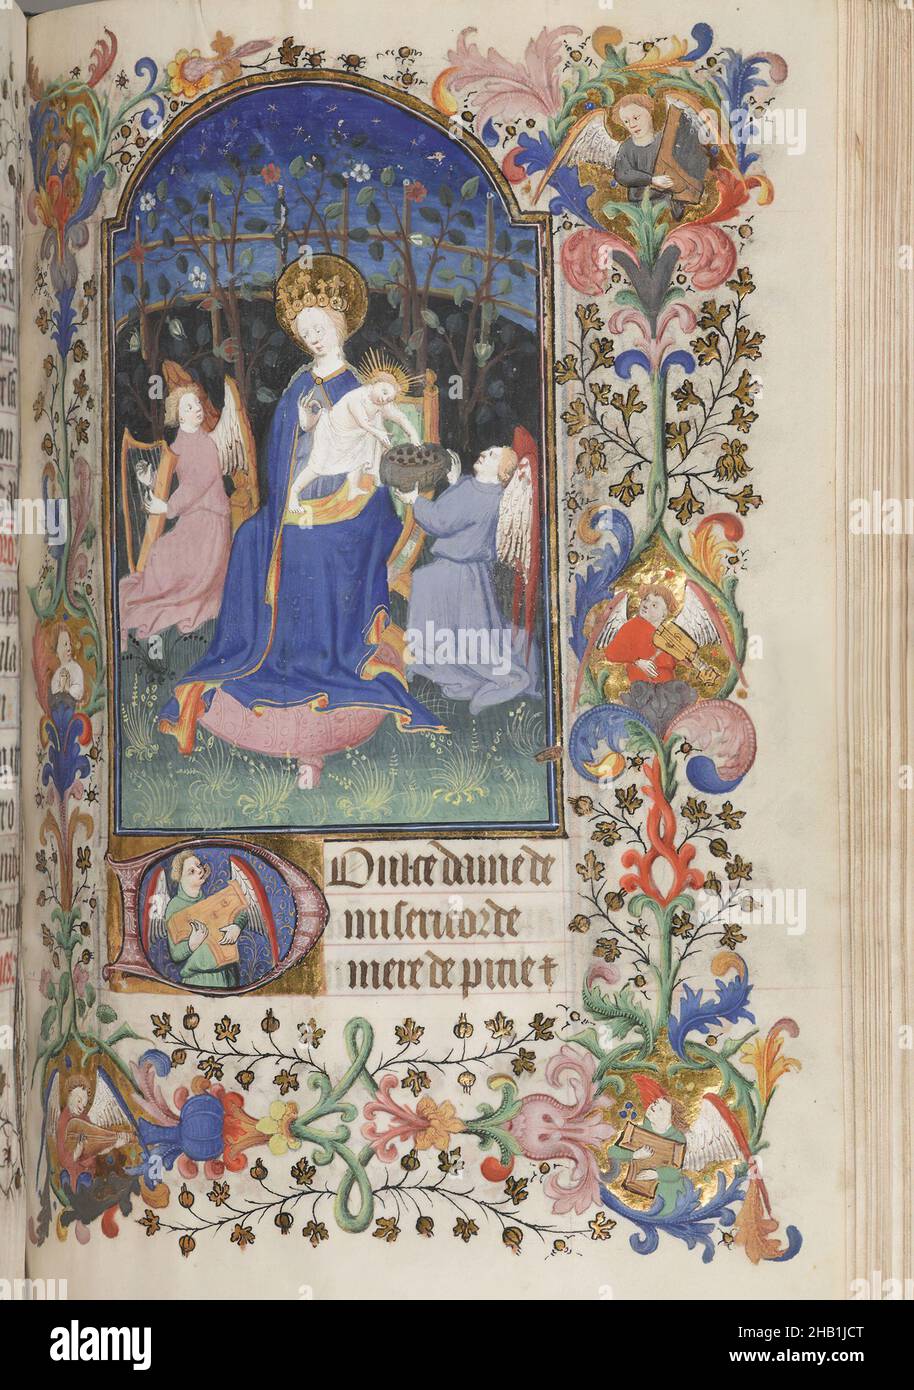 Doulce dame de
misericorde
mere de pitie ⁊
alamy
Image ID: 2HB1JCT
www.alamy.com